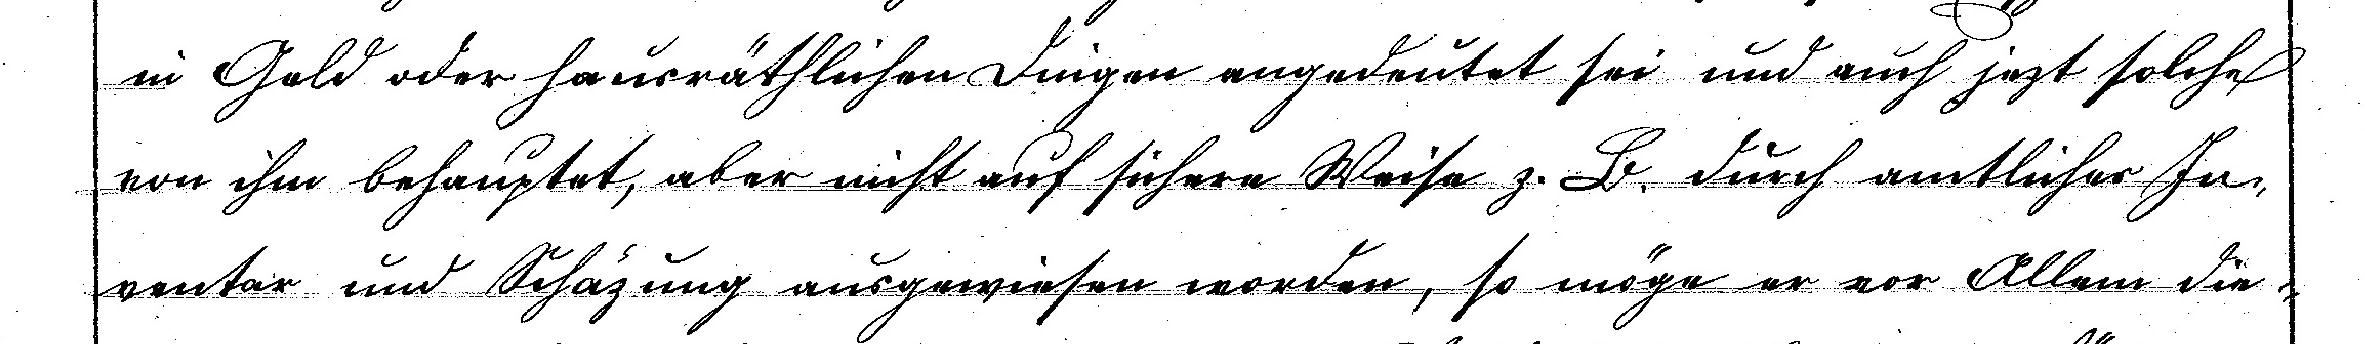 in Geld oder hausräthlichen Dingen angedeutet sei und auch jezt solche
von ihm behauptet, aber nicht auf sichere Weise z. B. durch amtliches In-
ventar und Schäzung ausgewiesen worden, so möge er vor Allem die-